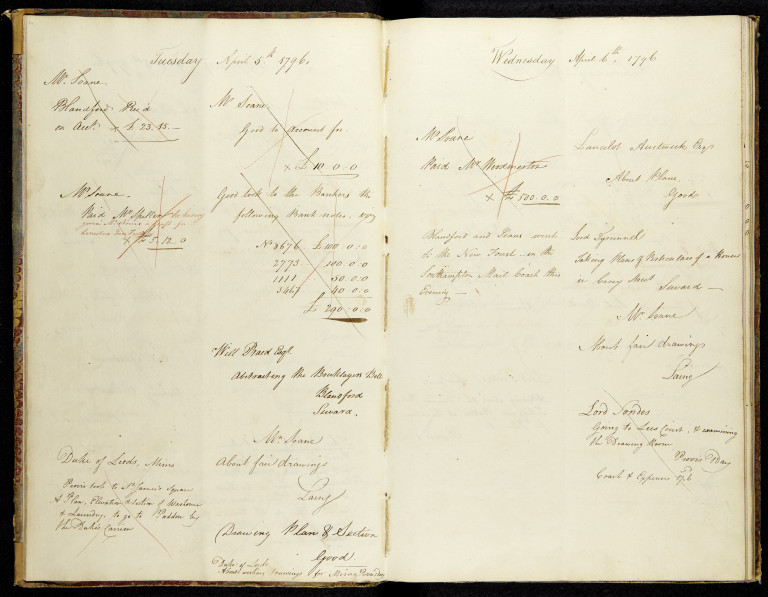 Tuesday April 5th 1796.
Mr Soane.
Blandford Rec'd
on Acct. x £ 23.15.—
Mr Soane.
Paid Mr Spiller for having
given
x £ 5.12.0
Duke of Leeds, Mims
Provis took to St James's Square
A Plan, Elevation & Section of Washouse
& Laundry, to go to by
the Duke's Carrier
Mr Soane
Good to Account for.
x £ 10:0:0
Good took to the Bankers the
following Bank notes.
No 8676 £ 100:0:0
2773 100:0:0
1111 50:0:0
3467 40:0:0
£ 290:0:0
Will Praed Esqr
Abstracting the Bricklayers Bill
Blandford
Seward.
Mr Soane
About fair drawings
Laing
Drawing Plan & Section
Good.
Duke of Leeds
About working Drawings for
Wednesday April 6th 1796
Mr Soane
Paid Mr
x £ 500.0.0
Blandford and went
to the New Forest in the
Southampton Mail Coach this
Evening —
Lancelot Austwick Esqr
About Plans.
Good
Lord
Taking Plans & Particulars of a House
in Street
Seward —
Mr Soane
About fair drawings
Laing
Lord Sondes
Going to Lees Court, & examining
the Drawing Room
Provis 1 Day
Coach & Expences 17/6